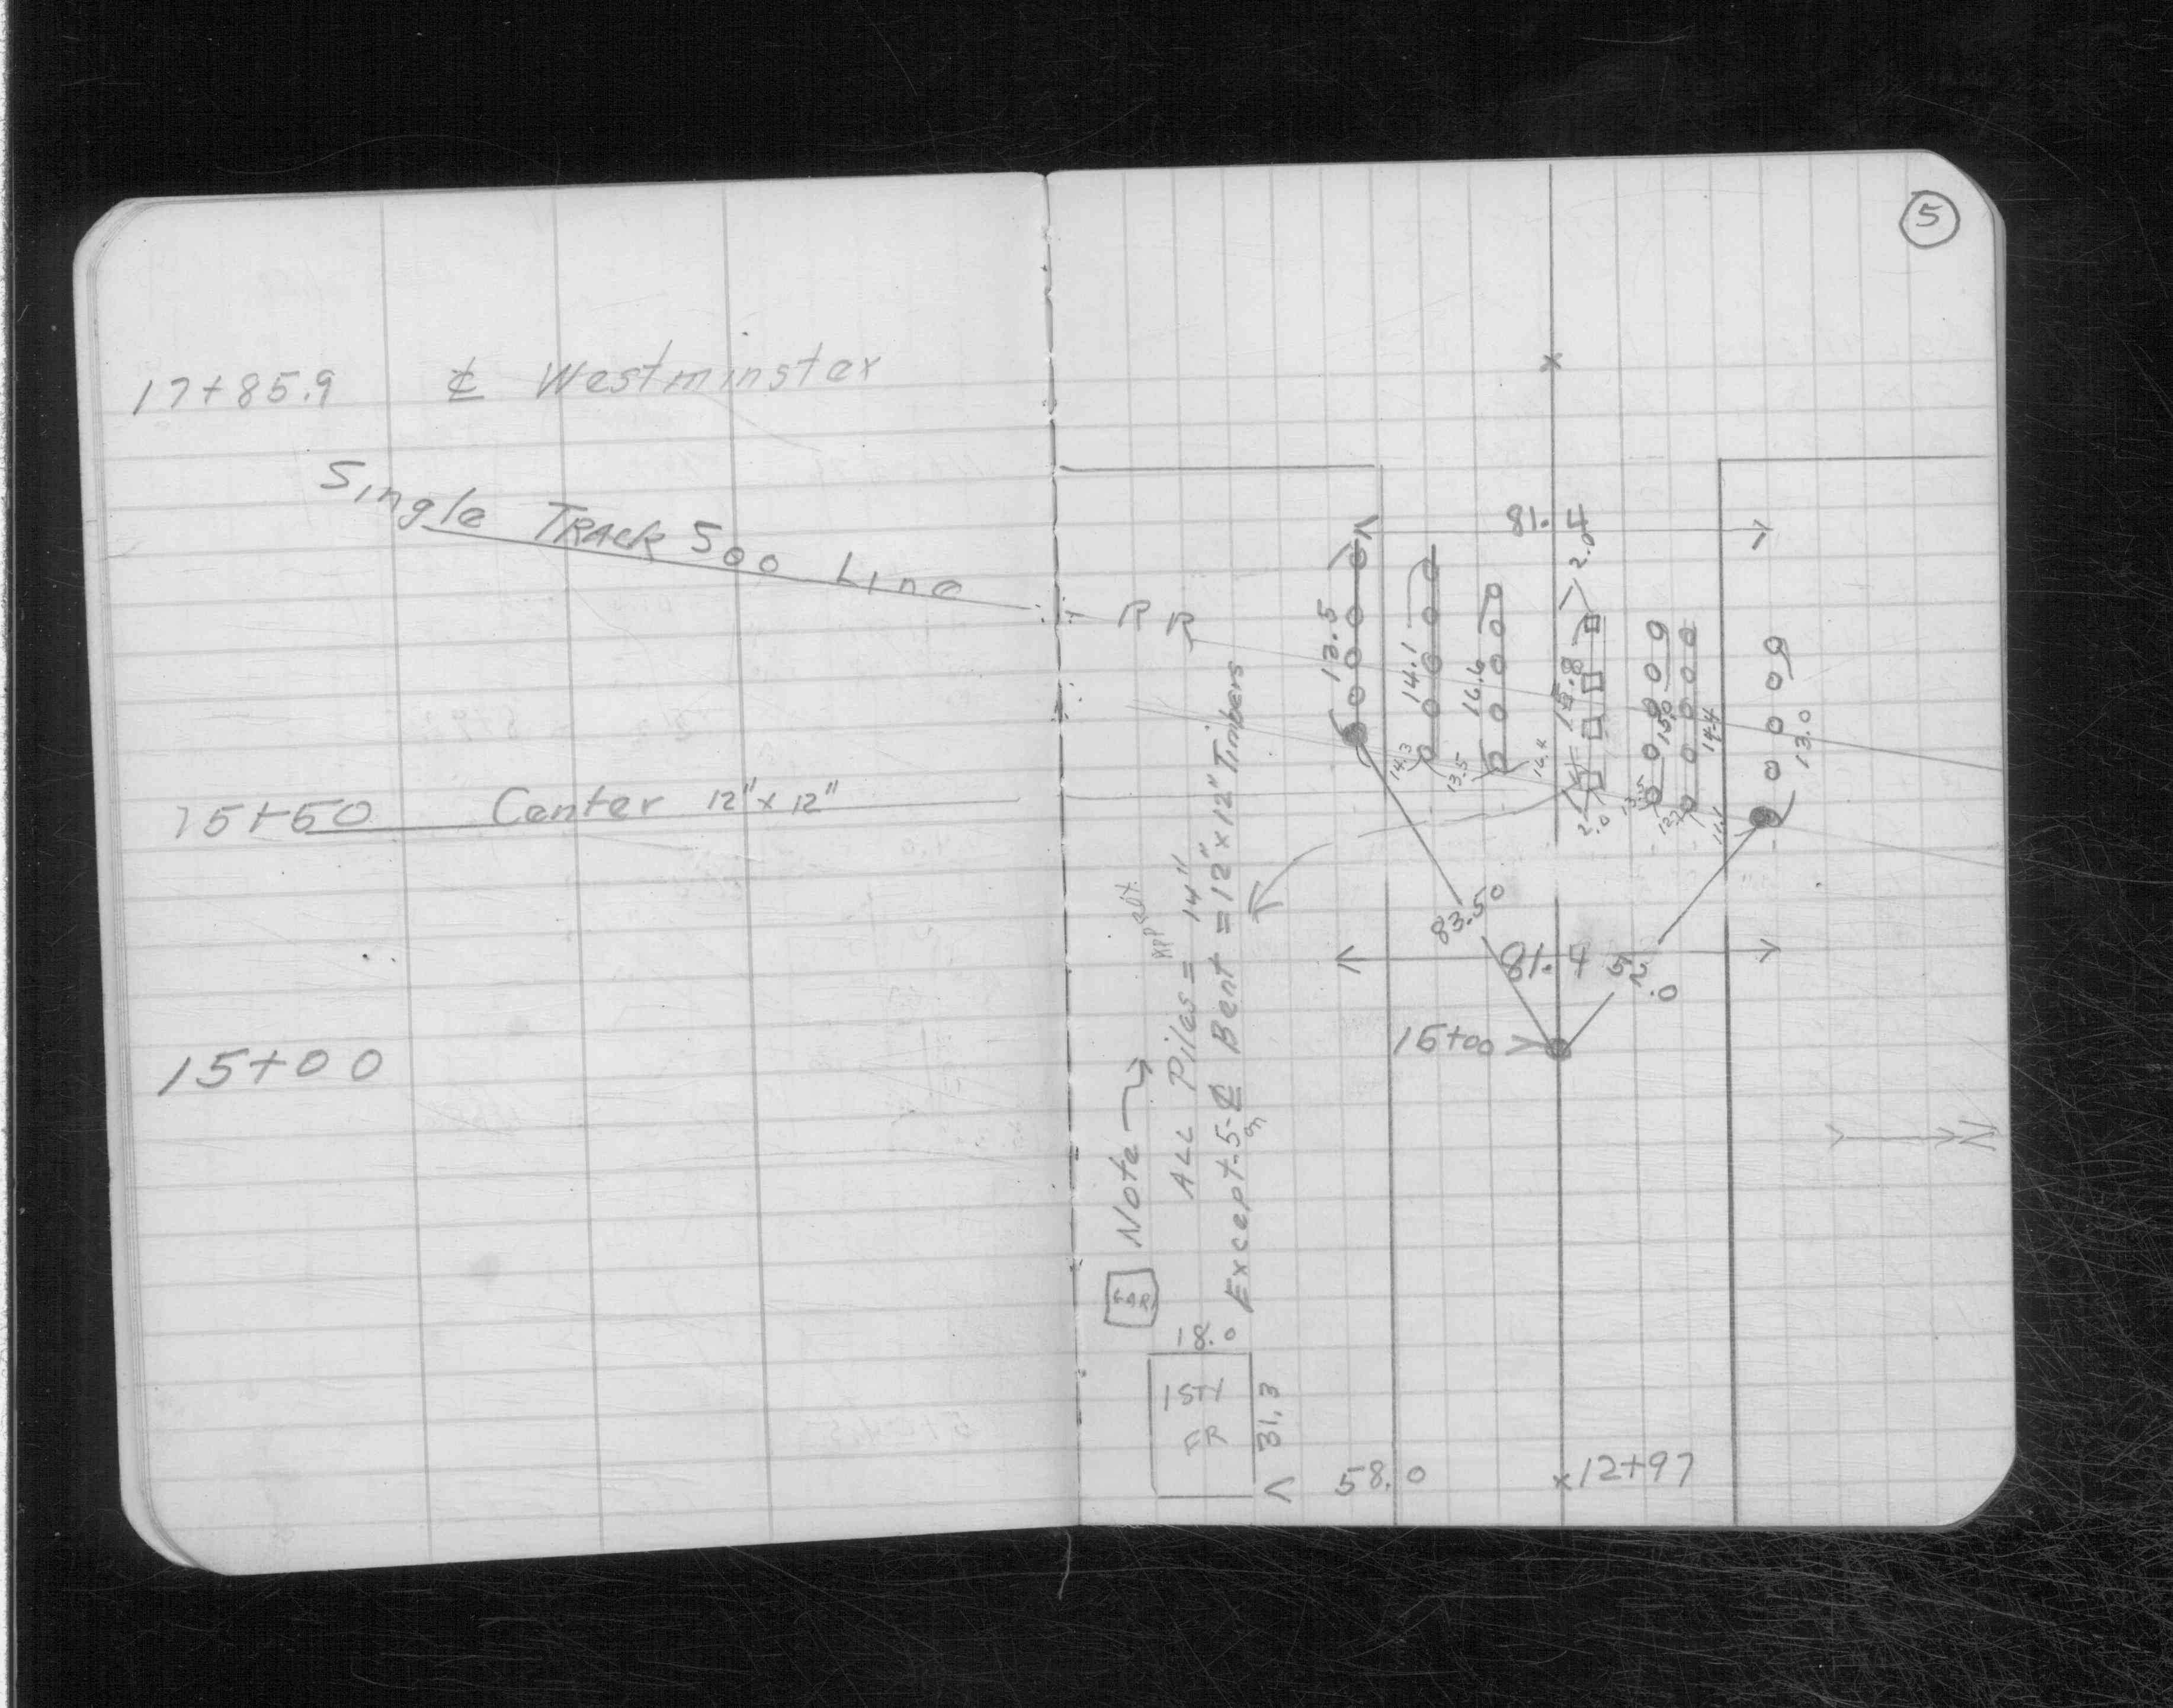 17+85.9 ⅊ Westminster
Single TRACK 500 Line
15+50 Center 12"x12"
15+00
5
x
81.4
2.0
RR
13.5
14.1
16.6
15.8
15.0
14.4
13.0
14.3
13.5
2.0
13.5
83.50
81.4
52.0
15+00
N
Note
ALL Piles = APPROX. 14"
Except-5-on ⅊ Bent = 12"x12" Timbers
GAR
18.0
1 STY
FR
31.3
58.0
x12+97